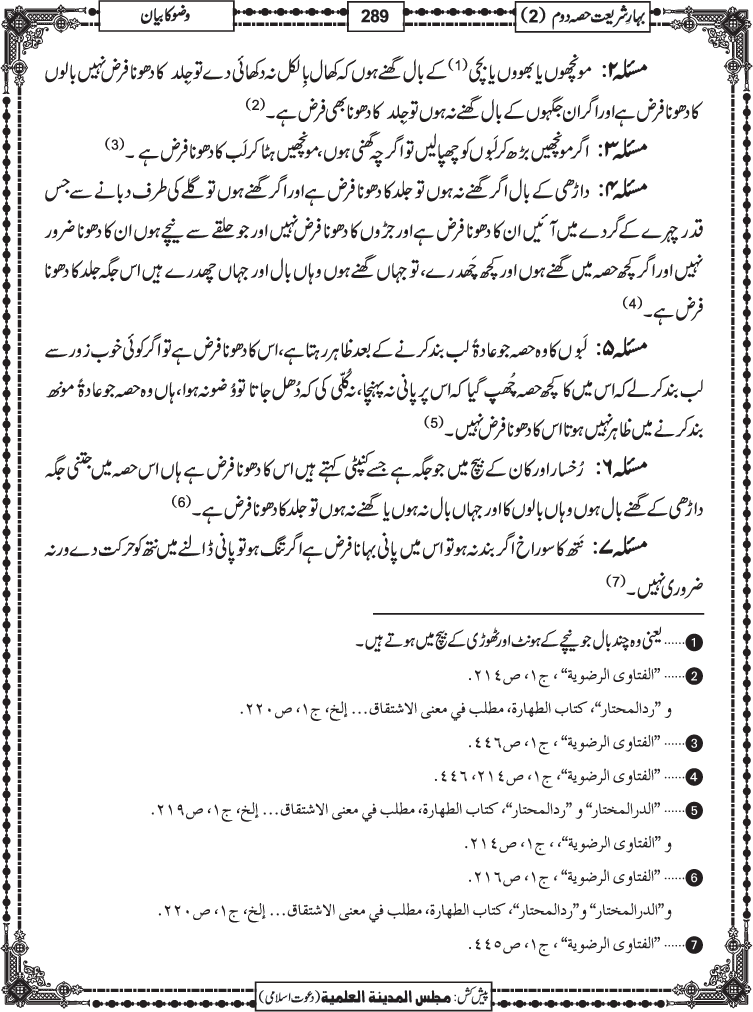 بہارِشریعت حصہ دوم (2)
289
وضو کا بیان
مسئلہ ۲: مونچھوں یا بھووں یا بچی (1) کے بال گھنے ہوں کہ کھال بِالکل نہ دکھائی دے تو جِلد کا دھونا فرض نہیں بالوں
کا دھونا فرض ہے اور اگر ان جگہوں کے بال گھنے نہ ہوں تو جِلد کا دھونا بھی فرض ہے۔ (2)
مسئلہ ۳: اگر مونچھیں بڑھ کر لبوں کو چھپالیں تو اگرچہ گھنی ہوں، مونچھیں ہٹا کر لَب کا دھونا فرض ہے ۔ (3)
مسئلہ ۴: داڑھی کے بال اگر گھنے نہ ہوں تو جلد کا دھونا فرض ہے اور اگر گھنے ہوں تو گلے کی طرف دبانے سے جس
قدر چہرے کے گردے میں آئیں ان کا دھونا فرض ہے اور جڑوں کا دھونا فرض نہیں اور جو حلقے سے نیچے ہوں ان کا دھونا ضرور
نہیں اور اگر کچھ حصہ میں گھنے ہوں اور کچھ چَھدرے، تو جہاں گھنے ہوں وہاں بال اور جہاں چھدرے ہیں اس جگہ جلد کا دھونا
فرض ہے۔ (4)
مسئلہ ۵: لَبوں کا وہ حصہ جو عادۃً لب بند کرنے کے بعد ظاہر رہتا ہے، اس کا دھونا فرض ہے تو اگر کوئی خوب زور سے
لب بند کرلے کہ اس میں کا کچھ حصہ چُھپ گیا کہ اس پر پانی نہ پہنچا، نہ کُلّی کی کہ دُھل جاتا تو وُضو نہ ہوا، ہاں وہ حصہ جو عادۃً مونھ
بند کرنے میں ظاہر نہیں ہوتا اس کا دھونا فرض نہیں۔ (5)
مسئلہ ۶: رُخسار اور کان کے بیچ میں جو جگہ ہے جسے کنپٹی کہتے ہیں اس کا دھونا فرض ہے ہاں اس حصہ میں جتنی جگہ
داڑھی کے گھنے بال ہوں وہاں بالوں کا اور جہاں بال نہ ہوں یا گھنے نہ ہوں تو جلد کا دھونا فرض ہے۔ (6)
مسئلہ ۷: نَتھ کا سوراخ اگر بند نہ ہو تو اس میں پانی بہانا فرض ہے اگر تنگ ہو تو پانی ڈالنے میں نتھ کو حرکت دے ورنہ
ضروری نہیں۔ (7)
1 ...... یعنی وہ چند بال جو نیچے کے ہونٹ اور ٹھوڑی کے بیچ میں ہوتے ہیں۔
2 ...... ”الفتاوى الرضوية“ ، ج١، ص٢١٤.
و ”ردالمحتار“، كتاب الطهارة، مطلب في معنى الاشتقاق... إلخ، ج١، ص٢٢٠.
3 ...... ”الفتاوى الرضوية“ ، ج١، ص٤٤٦.
4 ...... ”الفتاوى الرضوية“، ج١، ص٢١٤، ٤٤٦.
5 ...... ”الدرالمختار“ و ”ردالمحتار“، كتاب الطهارة، مطلب في معنى الاشتقاق... إلخ، ج١، ص٢١٩.
و ”الفتاوى الرضوية“، ، ج١، ص٢١٤.
6 ...... ”الفتاوى الرضوية“ ، ج١، ص٢١٦.
و”الدرالمختار“ و”ردالمحتار“، كتاب الطهارة، مطلب في معنى الاشتقاق... إلخ، ج١، ص٢٢٠.
7 ...... ”الفتاوى الرضوية“ ، ج١، ص٤٤٥.
پیش کش: مجلس المدينة العلمية (دعوت اسلامی)